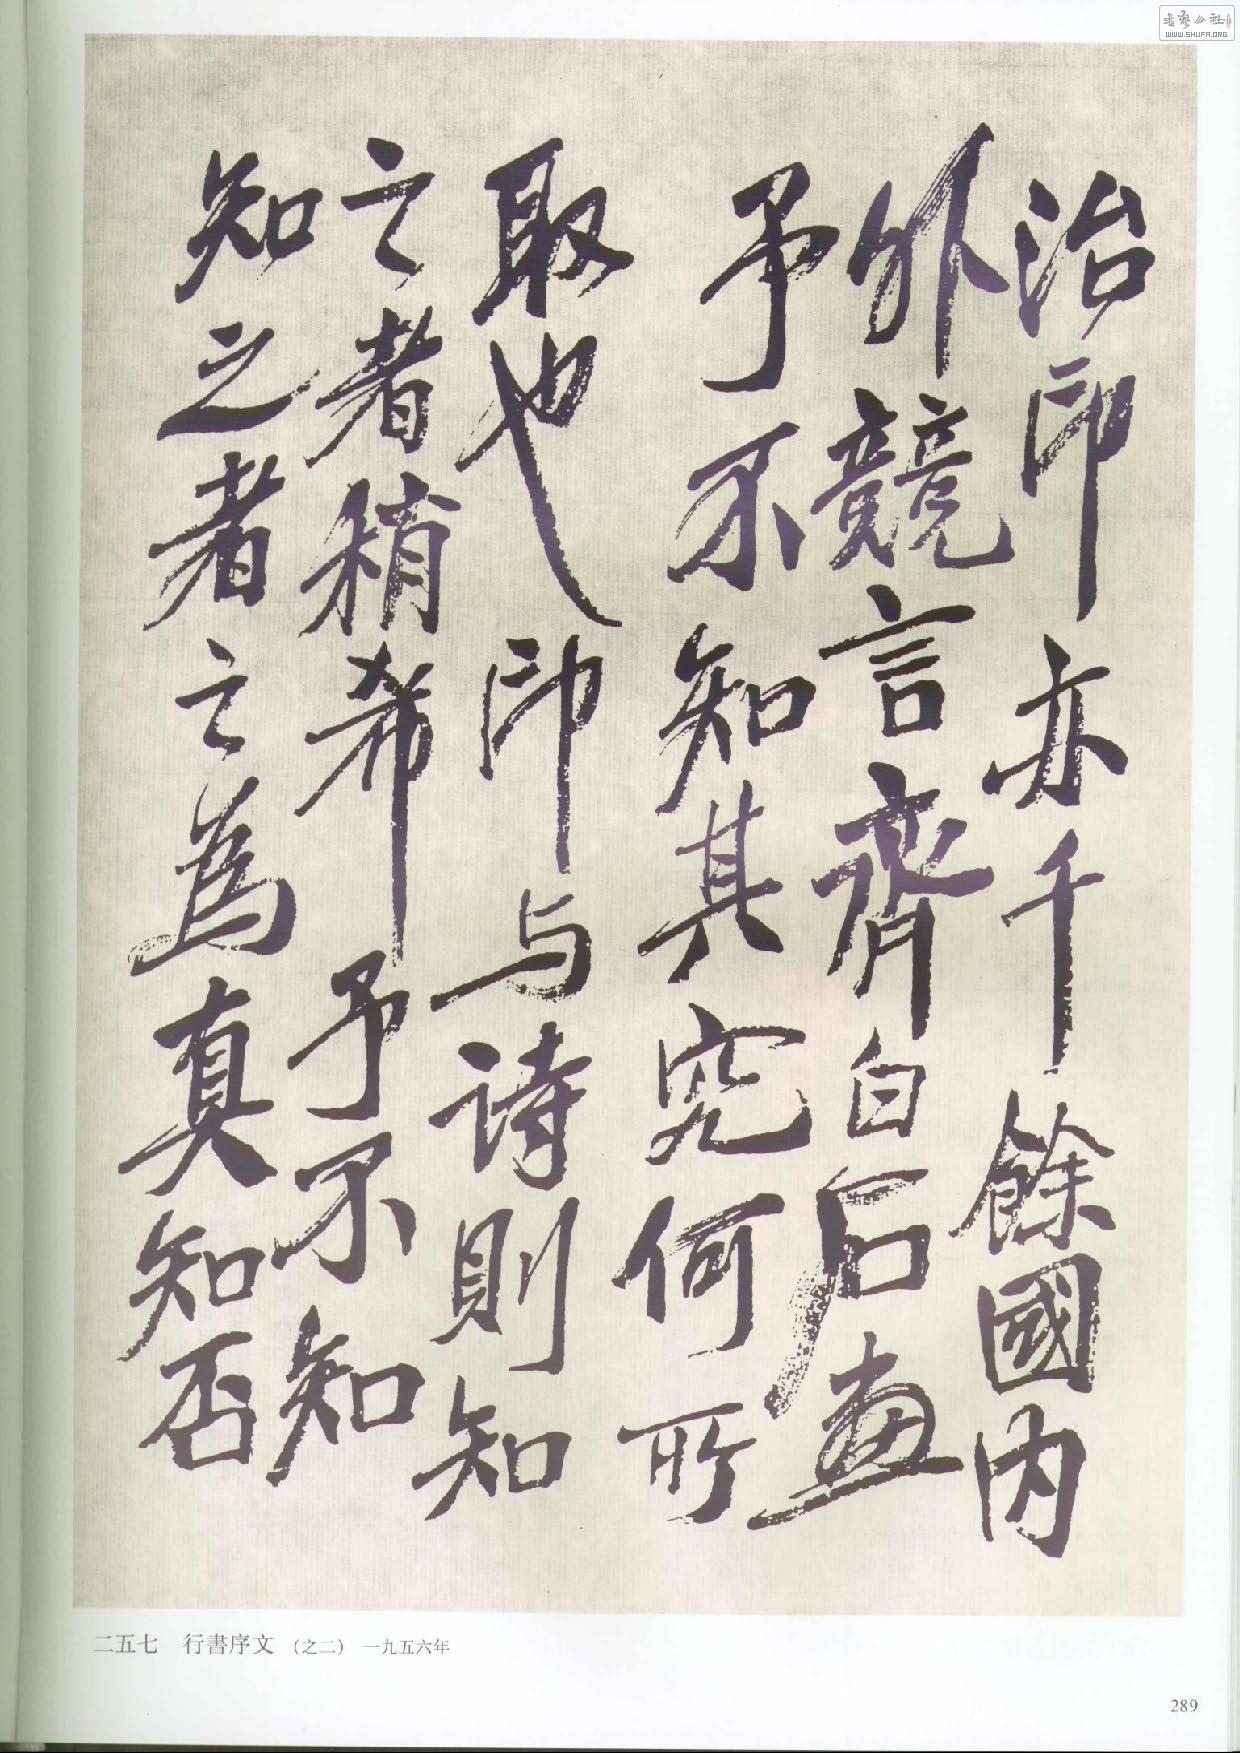 治印亦千餘國內
外競言齊白石畫
予不知其究何所
取也印与詩則知
之者稍希予不知
知之者之為真知否
二五七 行書序文 (之二) 一九五六年
289
書藝公社
WWW.SHUFA.ORG